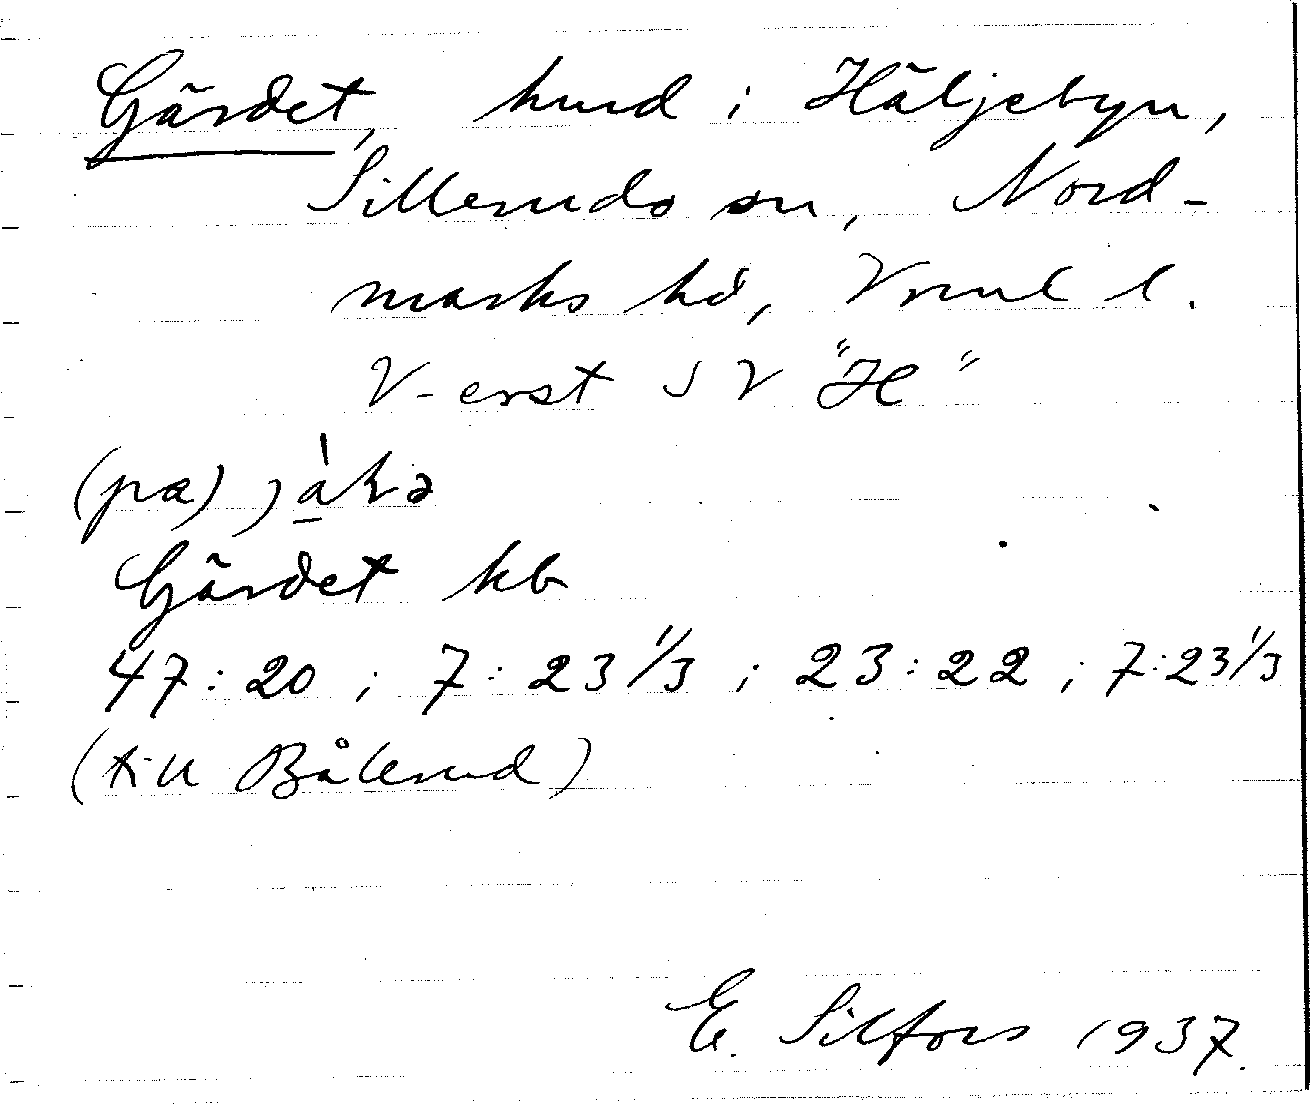 Gärdet, hmd i Häljebyn,
Silleruds sn, Nord-
marks hd, Vrml l.
V-erst SV "H"
(pa)
Gärdet kb
47:20 ; 7:23 1/3 ; 23:22 ; 7:23 1/3
(till Bålerud)
E. Silfors 1937.